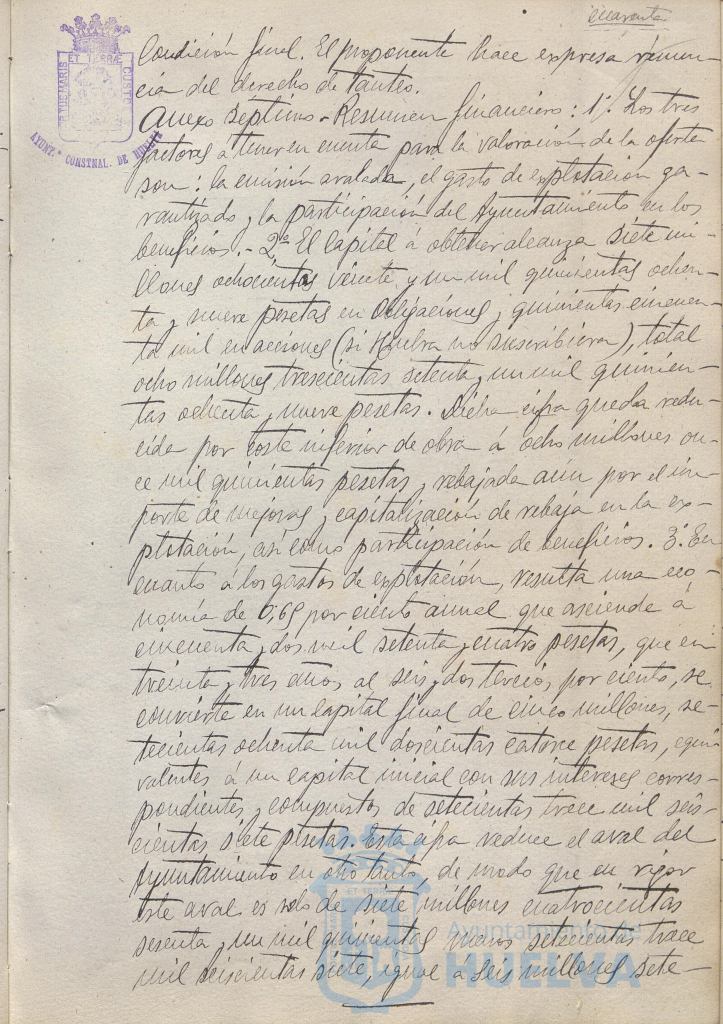 cuarenta
Condición final. El proponente hace expresa renun-
cia del derecho de tanteo.
Anexo septimo - Resumen financiero: 1º. Los tres
factores a tener en cuenta para la valoración de la oferta
son: la emisión avalada, el gasto de explotación ga-
rantizado y la participación del Ayuntamiento en los
beneficios. - 2º El Capital á obtener alcanza siete mi-
llones ochocientas veinte y un mil quinientas ochen-
ta y nueve pesetas en Obligaciones y quinientas cincuen-
ta mil en acciones (si Huelva no suscribiera), total
ocho millones trescientas setenta y un mil quinien-
tas ochenta y nueve pesetas. Dicha cifra queda redu-
cida por coste inferior de obra á ocho millones on-
ce mil quinientas pesetas y rebajada aún por el im-
porte de mejoras y capitalización de rebaja en la ex-
plotación, así como participación de beneficios. 3º. En
cuanto á los gastos de explotación, resulta una eco-
nomía de 0,65 por ciento anual que asciende á
cincuenta y dos mil setenta y cuatro pesetas, que en
treinta y tres años al seis y dos tercios por ciento, se
convierte en un capital final de cinco millones, se-
tecientas ochenta mil doscientas catorce pesetas, equi
valentes á un capital inicial con sus intereses corres-
pondientes y compuestos de setecientas trece mil seis-
cientas siete pesetas. Esta cifra reduce el aval del
Ayuntamiento en otro tanto, de modo que en rigor
este aval es solo de siete millones cuatrocientas
sesenta y un mil quinientas menos setecientas trece
mil seiscientas siete, igual a seis millones sete-
PORTUS MARIS
ET TERRAE
CUSTO
AYUNT.º CONSTNAL. DE HUELVA
Ayuntamiento de
HUELVA